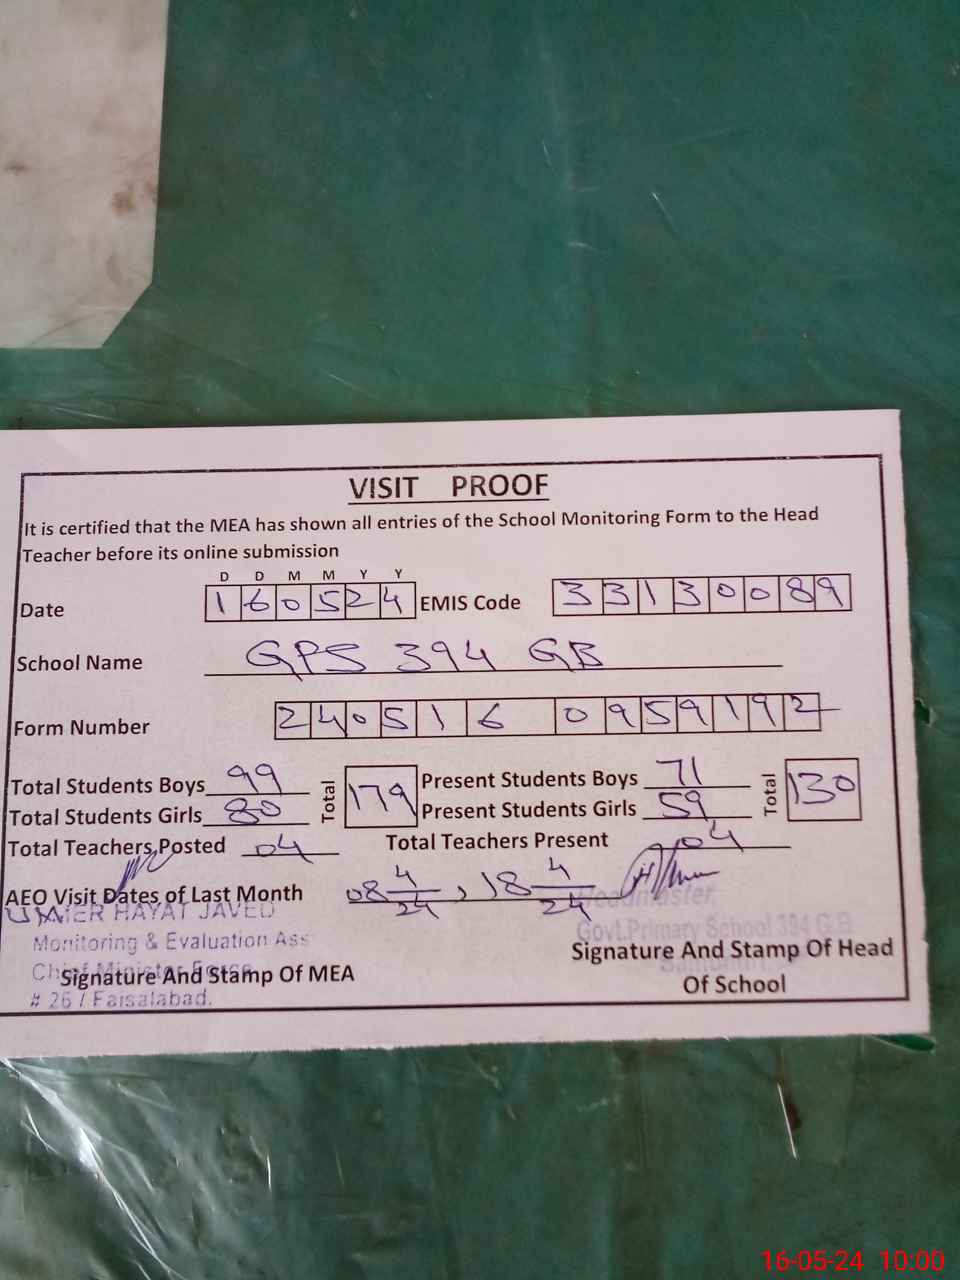 VISIT PROOF
It is certified that the MEA has shown all entries of the School Monitoring Form to the Head
Teacher before its online submission
D D M M Y Y
Date 1 6 0 5 2 4 EMIS Code 3 3 1 3 0 0 8 9
School Name GPS 394 GB
Form Number 2 4 0 5 1 6 0 9 5 9 1 9 2
Total Students Boys 99 Total 179 Present Students Boys 71 Total 130
Total Students Girls 80 Present Students Girls 59
Total Teachers Posted 04 Total Teachers Present 04
AEO Visit Dates of Last Month 08 4/24, 18 4/24
UMAIER HAYAT JAVED Headmaster,
Monitoring & Evaluation Ass Govt.Primary School 394 G.B
Chief Minister Signature And Stamp Of MEA Signature And Stamp Of Head
# 26 / Faisalabad. Of School
16-05-24 10:00